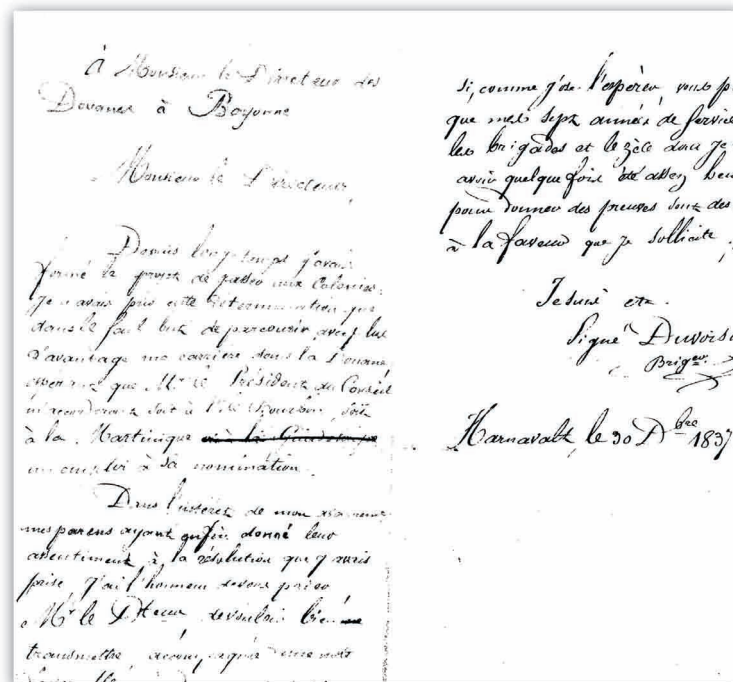 À Monsieur le Directeur des
Douanes à Bayonne
Monsieur le Directeur,
Depuis longtemps j'avais
formé le projet de passer aux Colonies.
Je n'avais pris cette détermination que
dans le seul but de parcourir avec plus
d'avantage ma carrière dans la Douane
espérant que Mr le Président du Conseil
m'accorderait soit à l'île Bourbon, soit
à la Martinique ou à la Guadeloupe
un emploi à sa nomination.
Dans l'intérêt de mon avancement
mes parens ayant enfin donné leur
assentiment à la résolution que j'avais
prise, j'ai l'honneur de vous prier
Mr le Dteur de vouloir bien
transmettre, accompagnée d'une note
si, comme j'ose l'espérer, vous p
que mes sept années de service
les brigades et le zèle dont je
avoir quelque fois été assez heu
pour donner des preuves sont des
à la faveur que je sollicite.
Je suis etc.
Signé Duvois
Briger
le 30 Xbre 1837